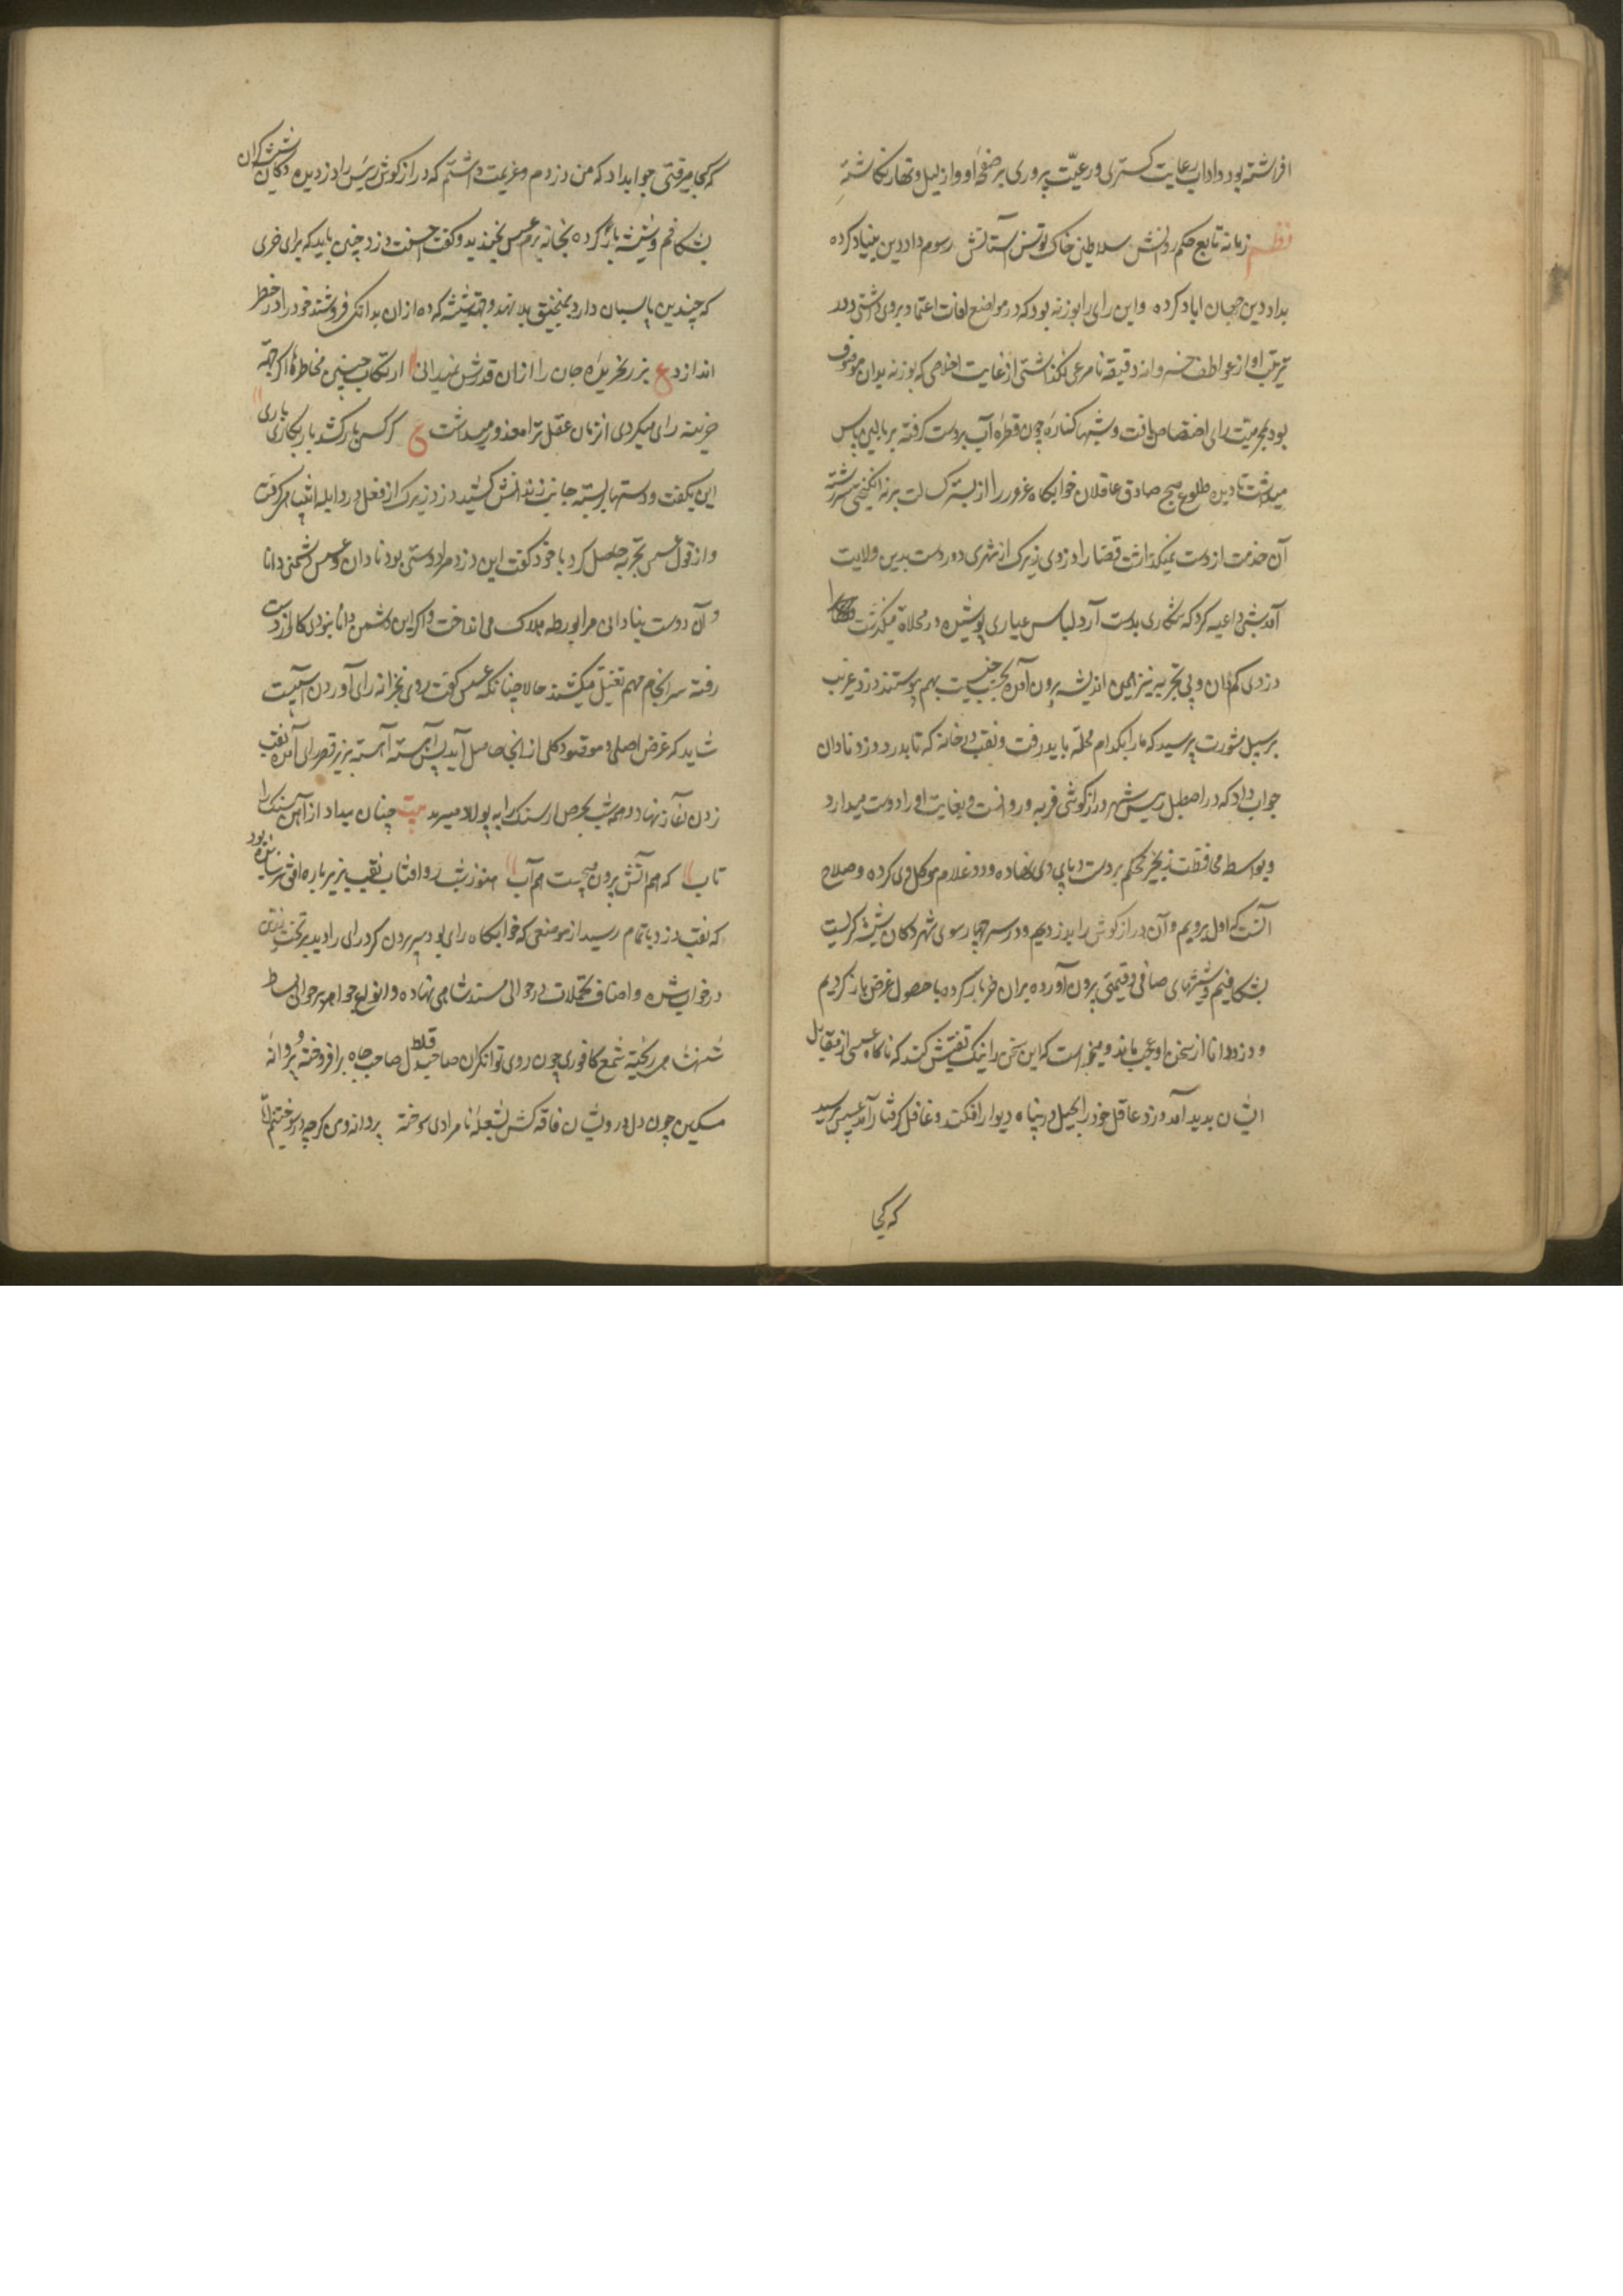 افراشته بود و اداب رعایت کستری و رعیّت پروری بر صفحهٔ او از لیل و نهار نکاشته
نظم زمانه تابع حکم روانش سلاطین خاک بوس آستانش رسوم داد و دین بنیاد کرده
بداد و دین جهان اباد کرده و این رای را بوزنه بود که در مواضع افات اعتماد بر وی داشتی و در
تربیت او از عواطف خسروانه دقیقه نامرعی نکذاشتی از غایت اخلاصی که بوزنه بدان موصوف
بود بمحرمیت رای اختصاص یافت و شبها کتاره چون قطره آب بر دست کرفته بر بالین پاس
میداشت تا دمیدن طلوع صبح صادق غافلان خوابکاه غرور را از بستر کسالت بر نه انکیختی سررشته
آن خدمت از دست نمیکذاشت قضا را دزدی زیرک از شهری دوردست بدین ولایت
آمد شبی داعیه کرد که شکاری بدست آرد لباس عیاری پوشیده در محلات میکذشت
دزدی کم دان و بی تجربه نیز بهمین اندیشه برون آمده بحسب جنسیت بهم پوستند دزد غریب
بر سبیل مشورت پرسید که ما را بکدام محله باید رفت و نقب در خانه که تا بدر دزد نادان
جواب داد که در اصطبل رییس شهر درازکوشی فربه و روانست و بغایت او را دوست میدارد
و بواسطه محافظت زنجیر محکم بر دست و پای وی نهاده و دو غلام موکل وی کرده و صلاح
آنست که اول برویم و آن درازکوش را بدزدیم و در سر چهارسوی شهر دکان شیشه کریست
بشکافیم و شیشهای صافی و قیمتی برون آورده بران خر بار کرده با حصول غرض باز کردیم
و دزد دانا از سخن او عجب ماند و میخواست که این سخن را نیک تفتیش کند که ناکاه عسس از مقابل
ایشان بدید آمد دزد عاقل خود را بحیل در پناه دیوار افکند و غافل کرفتار آمد عسس پرسید
که کجا
که کجا میرفتی جواب داد که من دزدم و عزیمت داشتم که درازکوش رییس را دزدیده دکان شیشه کران
بشکافم و شیشه بار کرده بخانه برم عسس بخندید و کفت احسنت دزد چنین باید که برای خری
که چندین پاسبان دارد بمنجنیق بلا نهد و بجهت شیشه که ده ازان بدانکی فروشند خود را در خطر
اندازد ع بزر نخریدهٔ جان را ازان قدرش نمیدانی ارتکاب چنین مخاطره اکر بجهة
خزینه رای میکردی از زبان عقل ترا معذور میداشت ع کر کسی بار کشد بار نکاری باری
این بکفت و دستها بسته جانب زندانش کشید دزد زیرک از فعل در دابله انتباهی کرفت
و از قول عسس تجربه حاصل کرد با خود کفت این دزد مرا دوستی بود نادان و عسس دشمنی دانا
و آن دوست بنادانی مرا بورطه هلاک می انداخت و اکر این دشمن دانا نبودی کار از دست
رفته سرانجام مهم تقتیل میکشد حالا چنانکه عسس کفت روی بخزانه رای آوردن انسبست
شاید که غرض اصلی و مقصود کلی از انجا حاصل آید پس آهسته آهسته بزیر قصر رای آمده نقب
زدن آغاز نهاد و همه شب بحرص از سنک رابه پولاد میبرید بیت چنان میداد از آهن سنک را
تاب که هم آتش برون میجست هم آب هنوز شب رو افتاب نقب بزیر باره افق نرسانیده بود
که نقب دزد باتمام رسید از موضعی که خوابکاه رای بود سر برون کرد رای را دید بر تخت زرین
در خواب شده و اصناف تجملات در حوالی مسند شاهی نهاده و انواع جواهر بر حوالی بساط
شهنشاهی ریخته شمع کافوری چون روی توانکران صاحبدل صاحب جاه برافروخته و پروانه
مسکین چون دل درویشان فاقه کش بشعلهٔ نامرادی سوخته پروانه و من کرچه درسوختیم اما